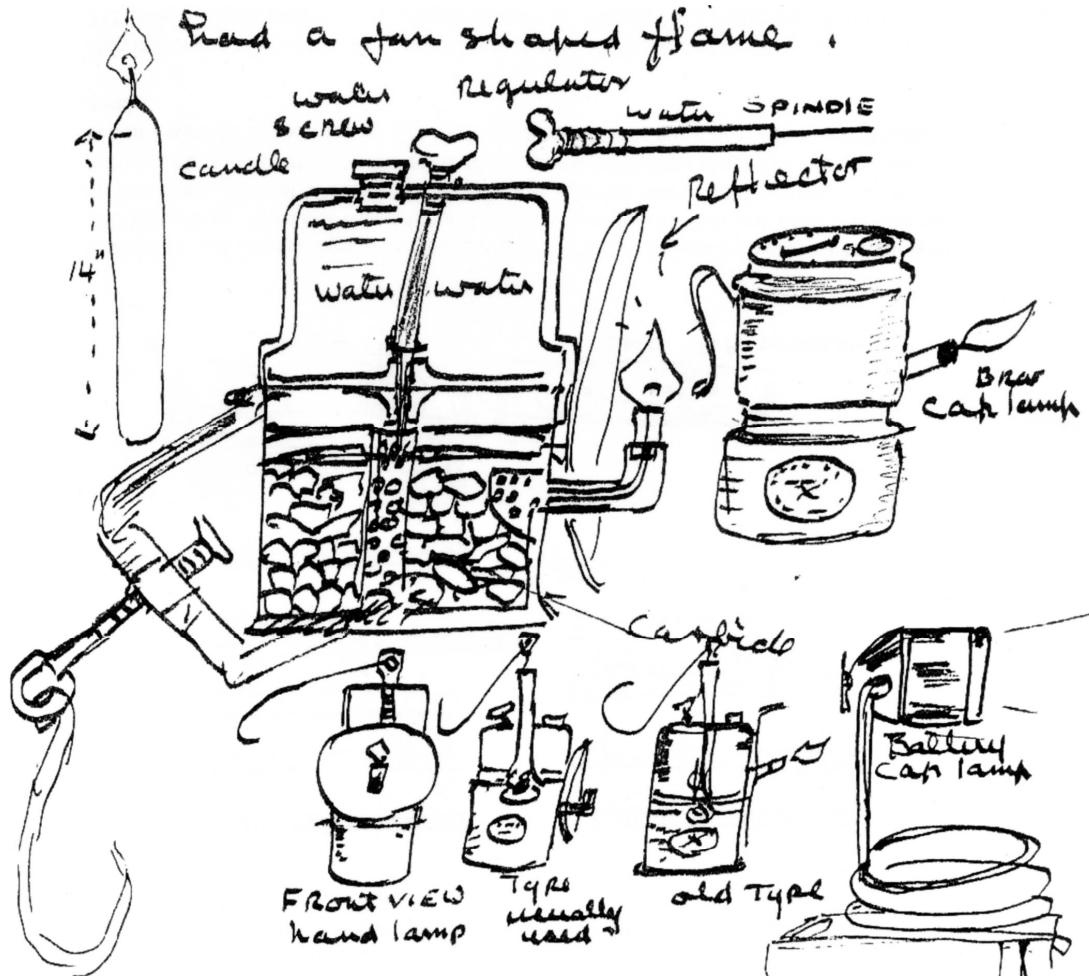 had a fan shaped flame.
water
screw
Regulator
water SPINDIE
candle
Reflector
14"
water water
Bras
cap lamp
Carbide
Battery
cap lamp
FRONT VIEW
hand lamp
Type
usually
used
old Type